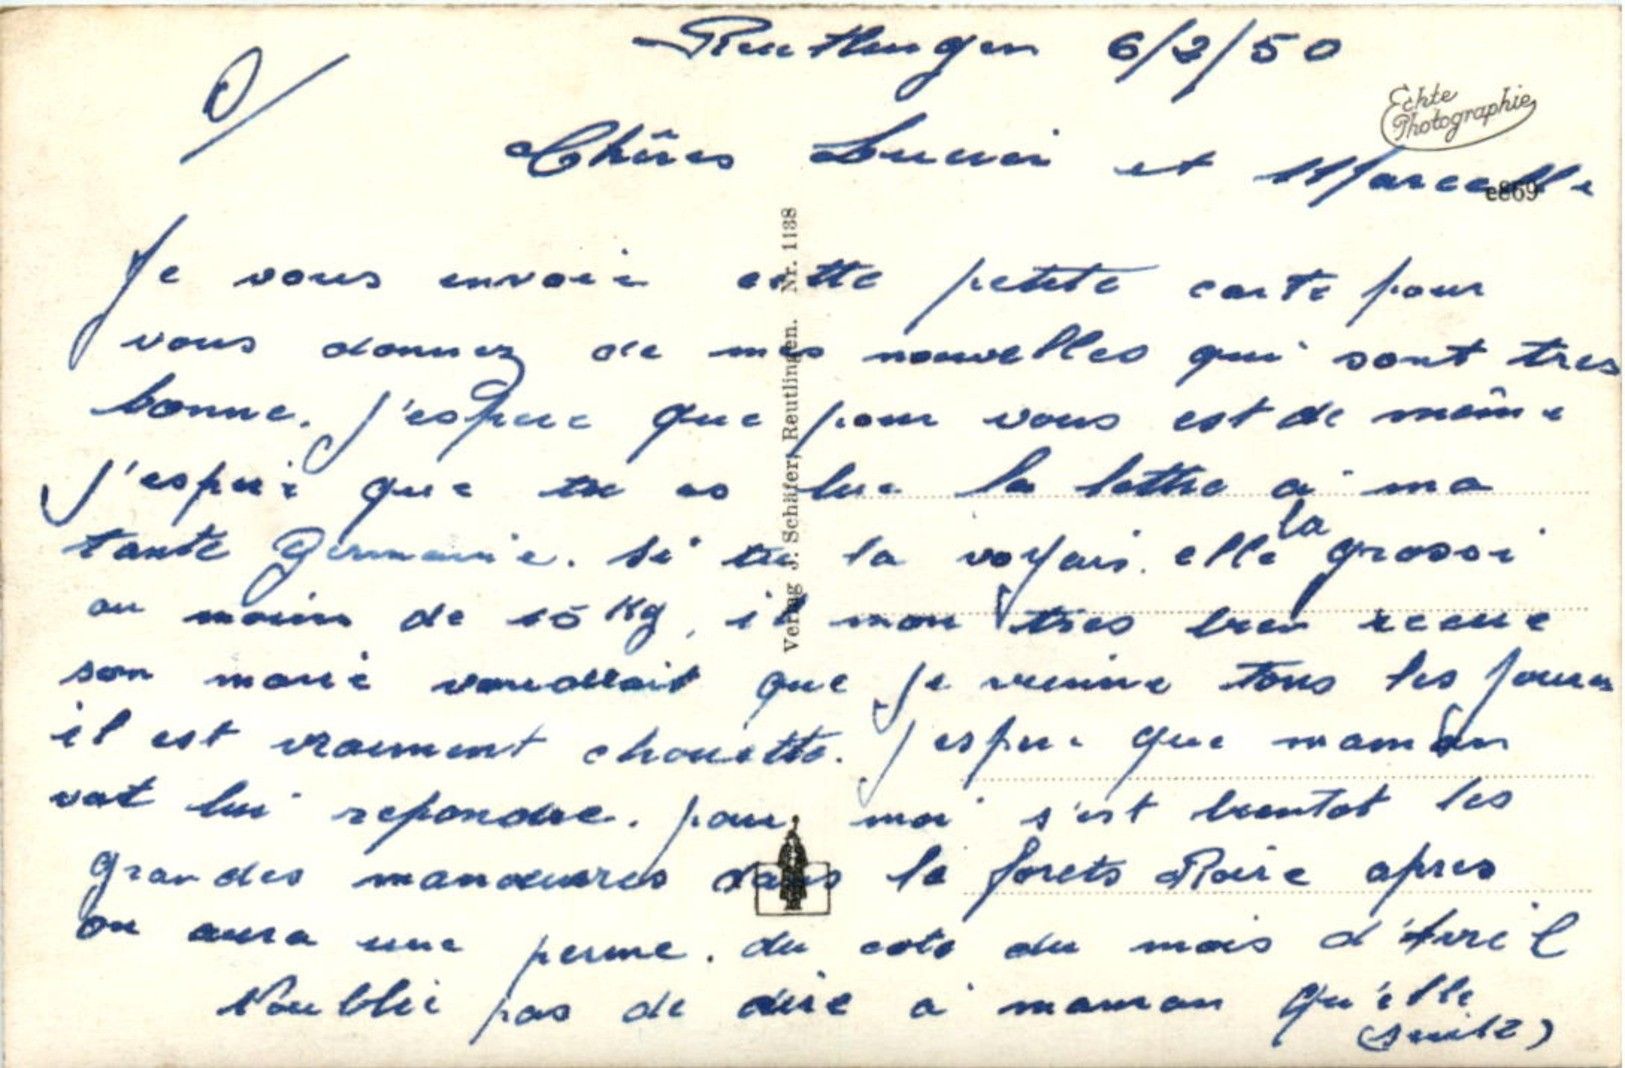 Reutlingen 6/2/50
1)
Echte
Photographie
Chères Lucien et Marcelle
e869
Je vous envoie cette petite carte pour
vous donnez de mes nouvelles qui sont tres
bonne. j'espere que pour vous est de même
j'espere que tu as lue la lettre a ma
tante Germaine. si tu la voyais. elle la grossi
au moins de 15 Kg, il mon tres bien recue
son marie voudrait que je vienne tous les jours
il est vraiment chouette. j'espere que maman
vat lui repondre. pour moi s'est bientot les
grandes manoeuvres dans la forets Noire apres
on aura une perme. du cote du mois d'Avril
N'oublie pas de dire a maman qu'elle
(suite)
Verlag J. Schäfer, Reutlingen. Nr. 1138